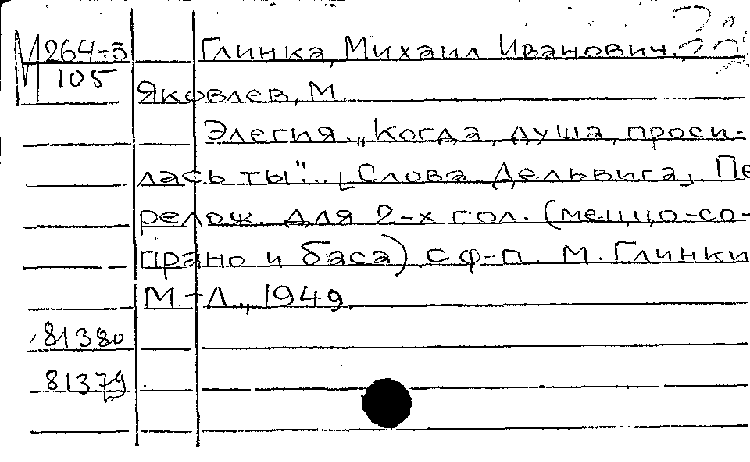 М 264-3 Глинка, Михаил Иванович.
105 Яковлев, М.
Элегия. „Когда, душа, проси-
лась ты"... [Слова Дельвига, Пе
релож. для 2-х гол. (меццо-со-
прано и баса) с ф-п. М. Глинки
М-Л., 1949.
81380
81379